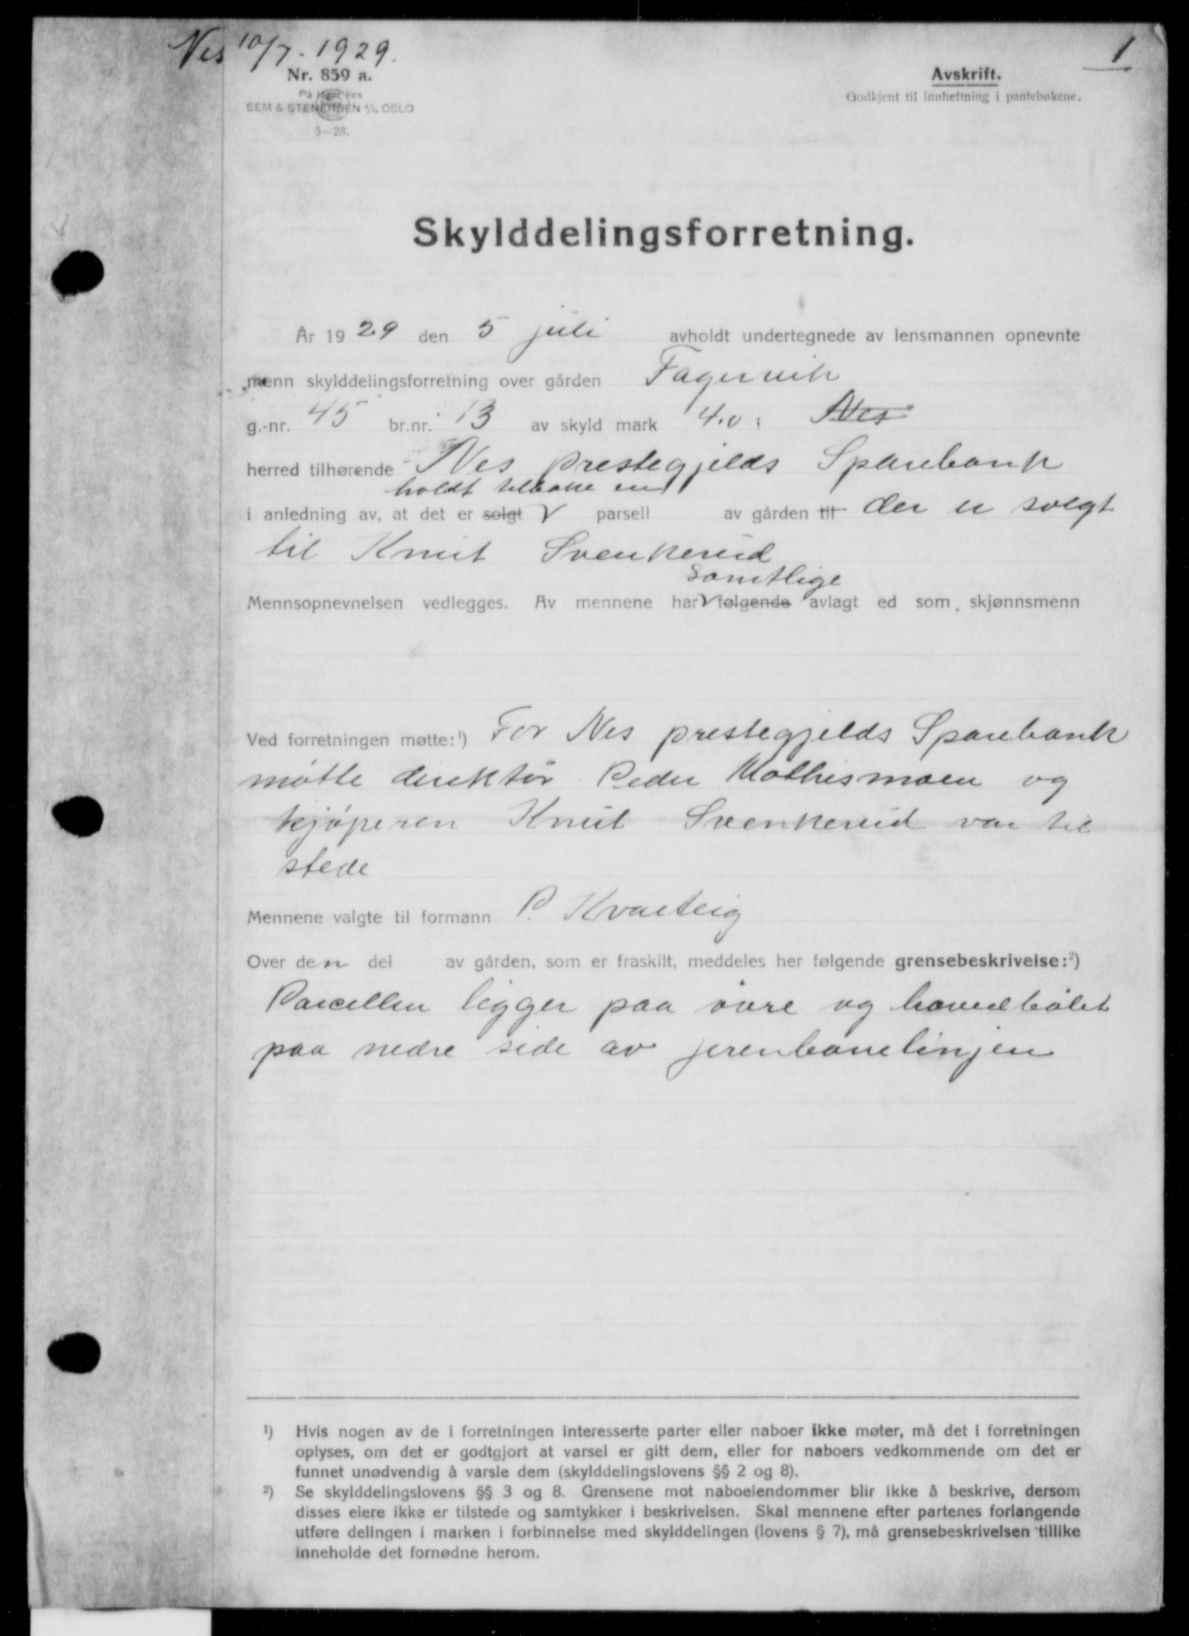 Nes 10/7 - 1929.
1
Nr. 859 a.
SEM & STENERSEN A/S, OSLO
5—28.
Avskrift.
Godkjent til innheftning i pantebøkene.
Skylddelingsforretning.
År 1929 den 5 juli avholdt undertegnede av lensmannen opnevnte
menn skylddelingsforretning over gården Fagervik
g.-nr. 45 br.nr. 13 av skyld mark 4.0 i Nes
herred tilhørende Nes prestegjelds Sparebank
holdt tilbake en
i anledning av, at det er solgt V parsell av gården til der er solgt
til Knut Svenkerud
samtlige
Mennsopnevnelsen vedlegges. Av mennene har V følgende avlagt ed som skjønnsmenn
Ved forretningen møtte:¹) For Nes prestegjelds Sparebank
møtte direktør Peder Mathismoen og
kjøperen Knut Svenkerud var til
stede
Mennene valgte til formann P. Kvarteig
Over den del av gården, som er fraskilt, meddeles her følgende grensebeskrivelse:²)
Parcellen ligger paa øvre og hovedbølet
paa nedre side av jerenbanelinjen
¹) Hvis nogen av de i forretningen interesserte parter eller naboer ikke møter, må det i forretningen
oplyses, om det er godtgjort at varsel er gitt dem, eller for naboers vedkommende om det er
funnet unødvendig å varsle dem (skylddelingslovens §§ 2 og 8).
²) Se skylddelingslovens §§ 3 og 8. Grensene mot naboeiendommer blir ikke å beskrive, dersom
disses eiere ikke er tilstede og samtykker i beskrivelsen. Skal mennene efter partenes forlangende
utføre delingen i marken i forbinnelse med skylddelingen (lovens § 7), må grensebeskrivelsen tillike
inneholde det fornødne herom.